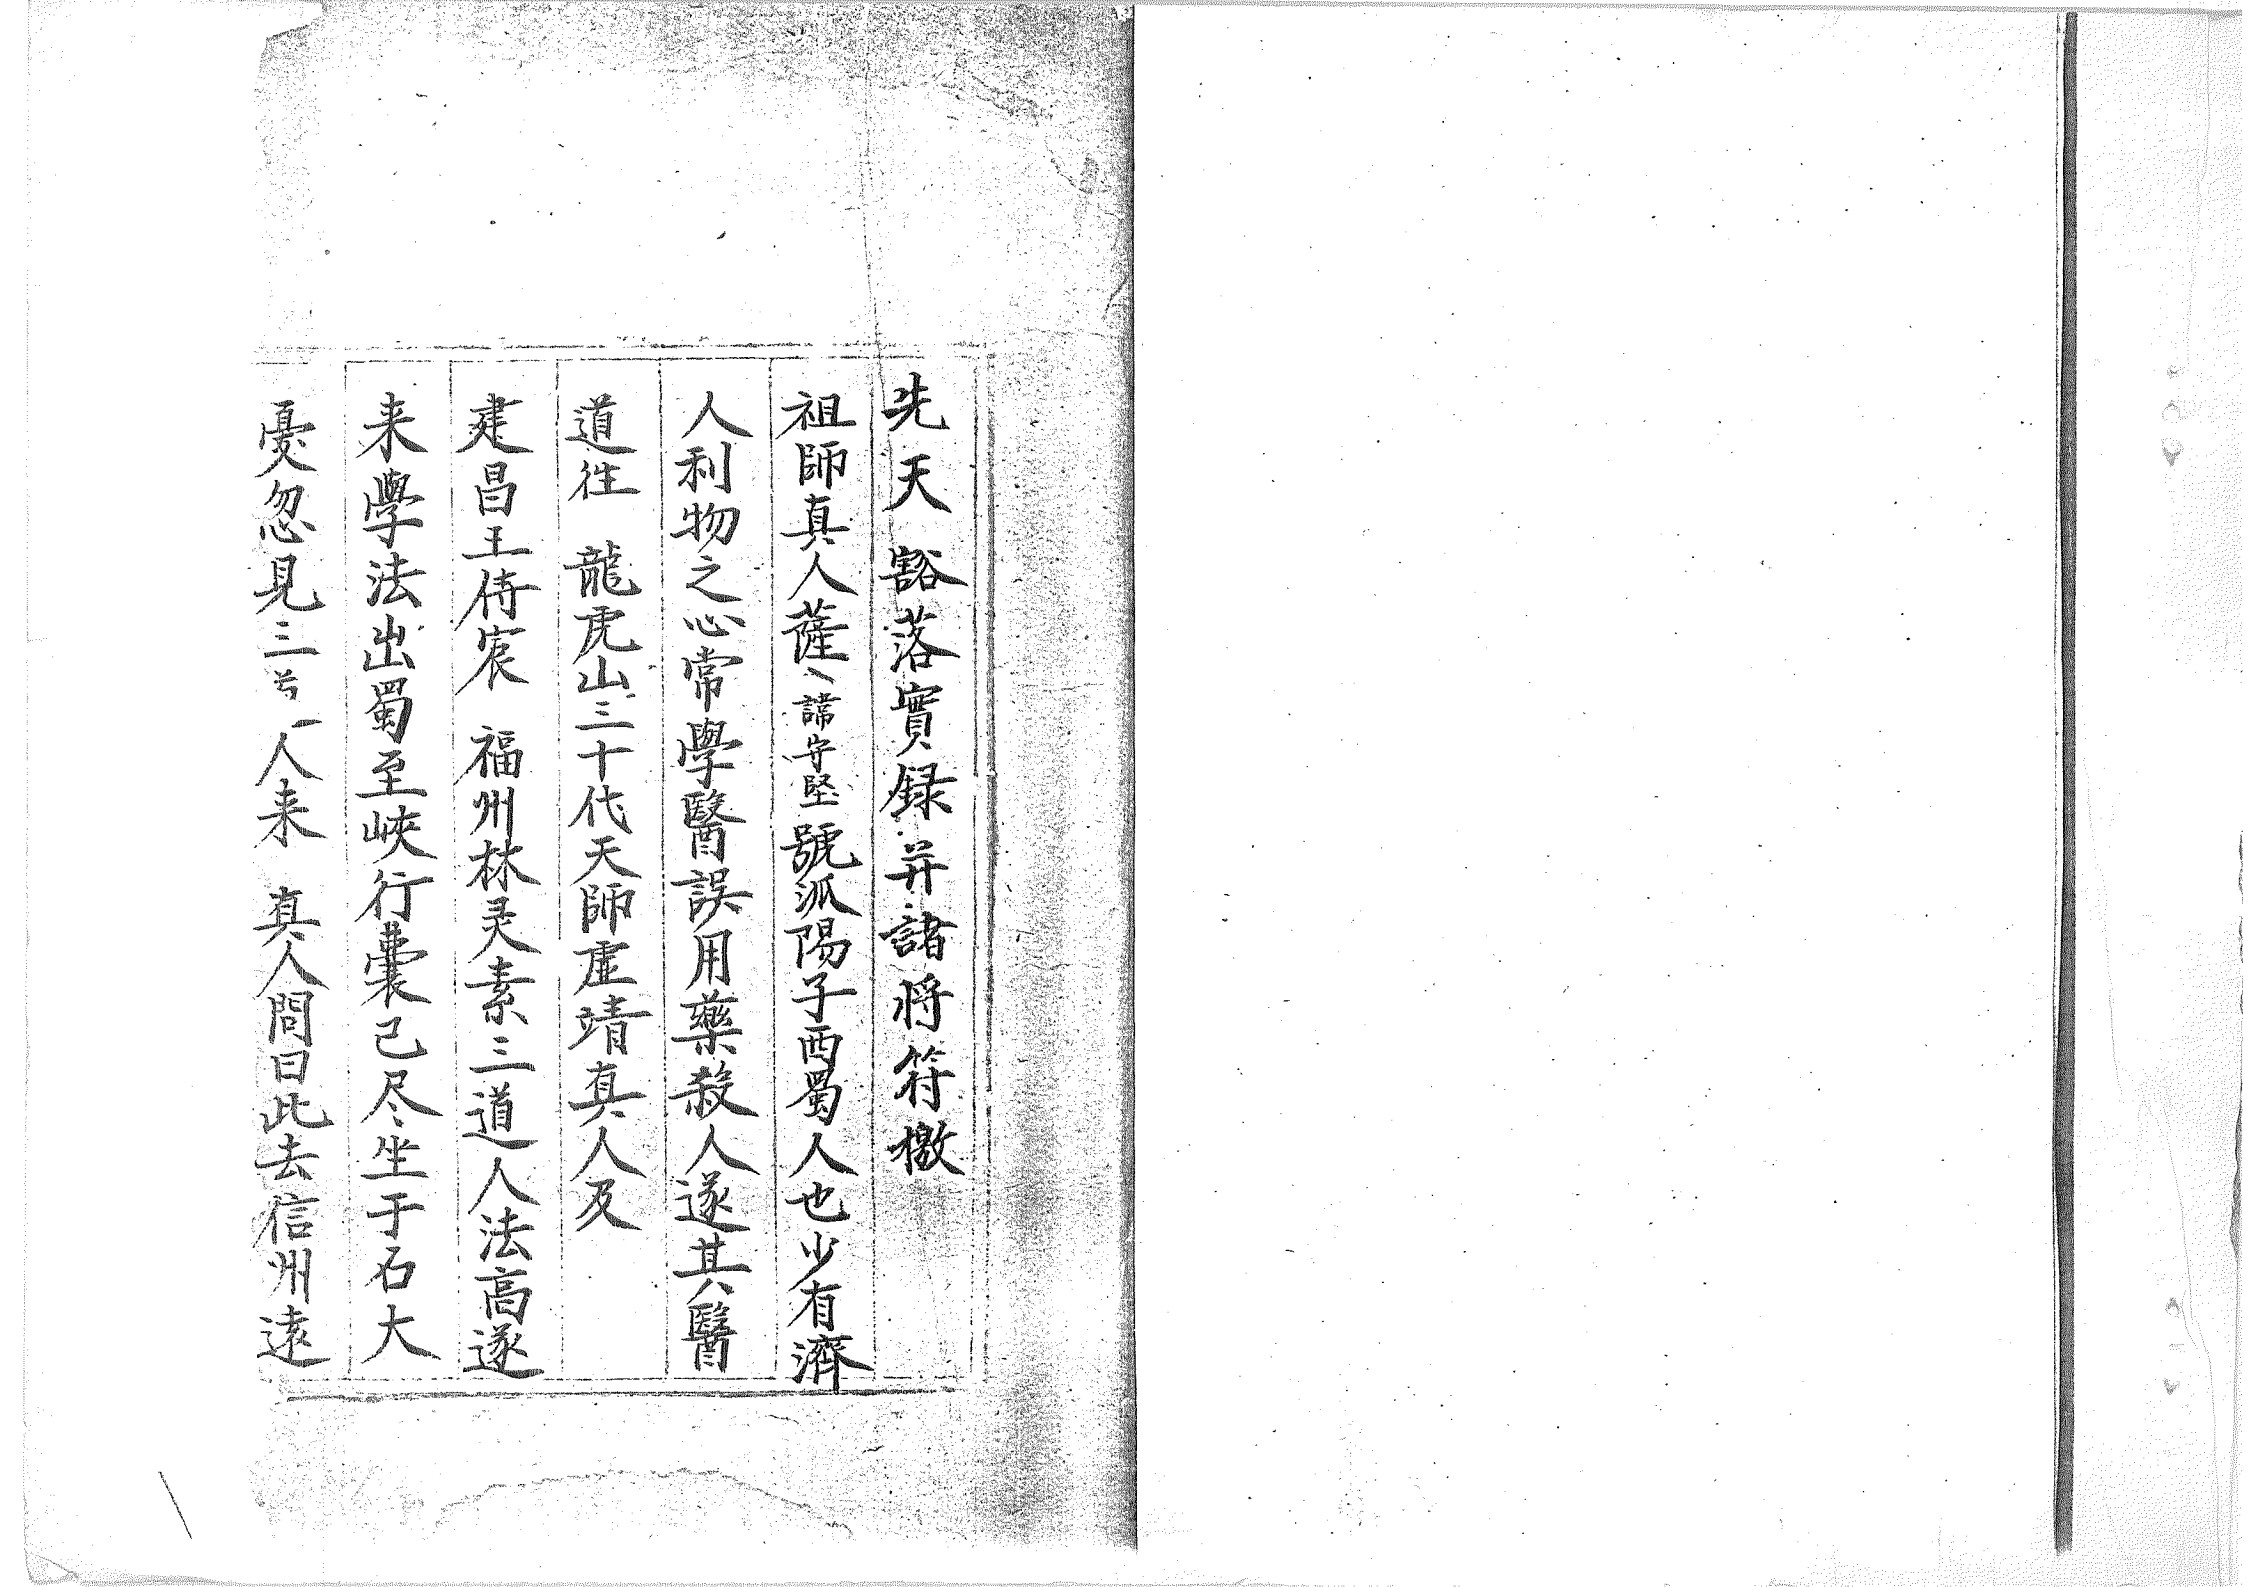 先天豁落實録并諸将符檄
祖師真人薩、諱守堅號派陽子西蜀人也少有濟
人利物之心常學醫誤用藥殺人遂其醫
道徃　龍虎山三十代天師虛靖真人及
建昌王侍宸　福州林灵素三道人法高遂
来學法出蜀至峽行囊已尽坐于石大
憂忽見三　人来　真人問曰此去信州遠